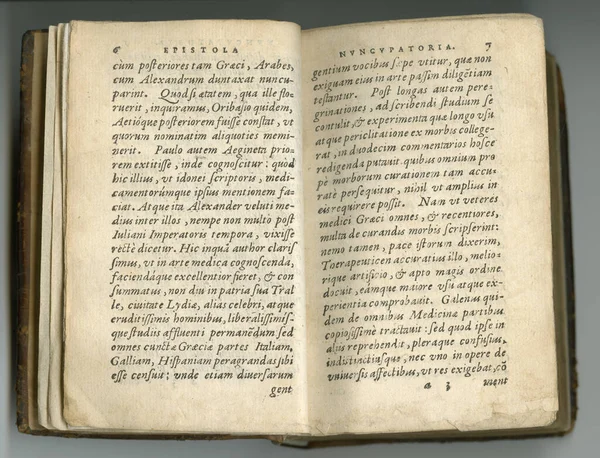 6 EPISTOLA
cùm posteriores tam Græci, Arabes,
eum Alexandrum duntaxat nuncu-
parint. Quòd si ætatem, qua ille flo-
ruerit, inquiramus, Oribasio quidem,
Aetióque posteriorem fuisse constat, vt
quorum nominatim aliquoties memi-
nerit. Paulo autem Aegineta prio-
rem extitisse, inde cognoscitur: quòd
hic illius, vt idonei scriptoris, medi-
camentorúmque ipsius mentionem fa-
ciat. Atque ita Alexander veluti me-
dius inter illos, nempe non multò post
Iuliani Imperatoris tempora, vixisse
rectè dicetur. Hic inquã author claris
simus, vt in arte medica cognoscenda,
faciendáque excellentior fieret, & con
summatus, non diu in patria sua Tral
le, ciuitate Lydiæ, alias celebri, atque
eruditissimis hominibus, liberalissimis-
que studiis affluenti permanẽdum sed
omnes cunctæ Græciæ partes Italiam,
Galliam, Hispaniam peragrandas sibi
esse censuit: vnde etiam diuersarum
gent
NVNCVPATORIA. 7
gentium vocibus sæpe vtitur, quæ non
exiguam eius in arte passim diligẽtiam
testantur. Post longas autem pere-
grinationes, ad scribendi studium se
contulit, & experimenta quæ longo vsu
atque periclitatione ex morbis college-
rat, in duodecim commentarios hosce
redigenda putauit. quibus omnium pro
pè morborum curationem tam accu-
ratè persequitur, nihil vt amplius in
eis requirere possit. Nam vt veteres
medici Græci omnes, & recentiores,
multa de curandis morbis scripserint:
nemo tamen, pace istorum dixerim,
Therapeuticen accuratius illo, melio-
rique artificio, & apto magis ordine
docuit, eámque maiore vsu atque ex-
perientia comprobauit. Galenus qui-
dem de omnibus Medicinæ partibus
copiosissimè tractauit: sed quod ipse in
aliis reprehendit, pleraque confusius,
indistinctiusque, nec vno in opere de
vniuersis affectibus, vt res exigebat, cõ
a 3 uient